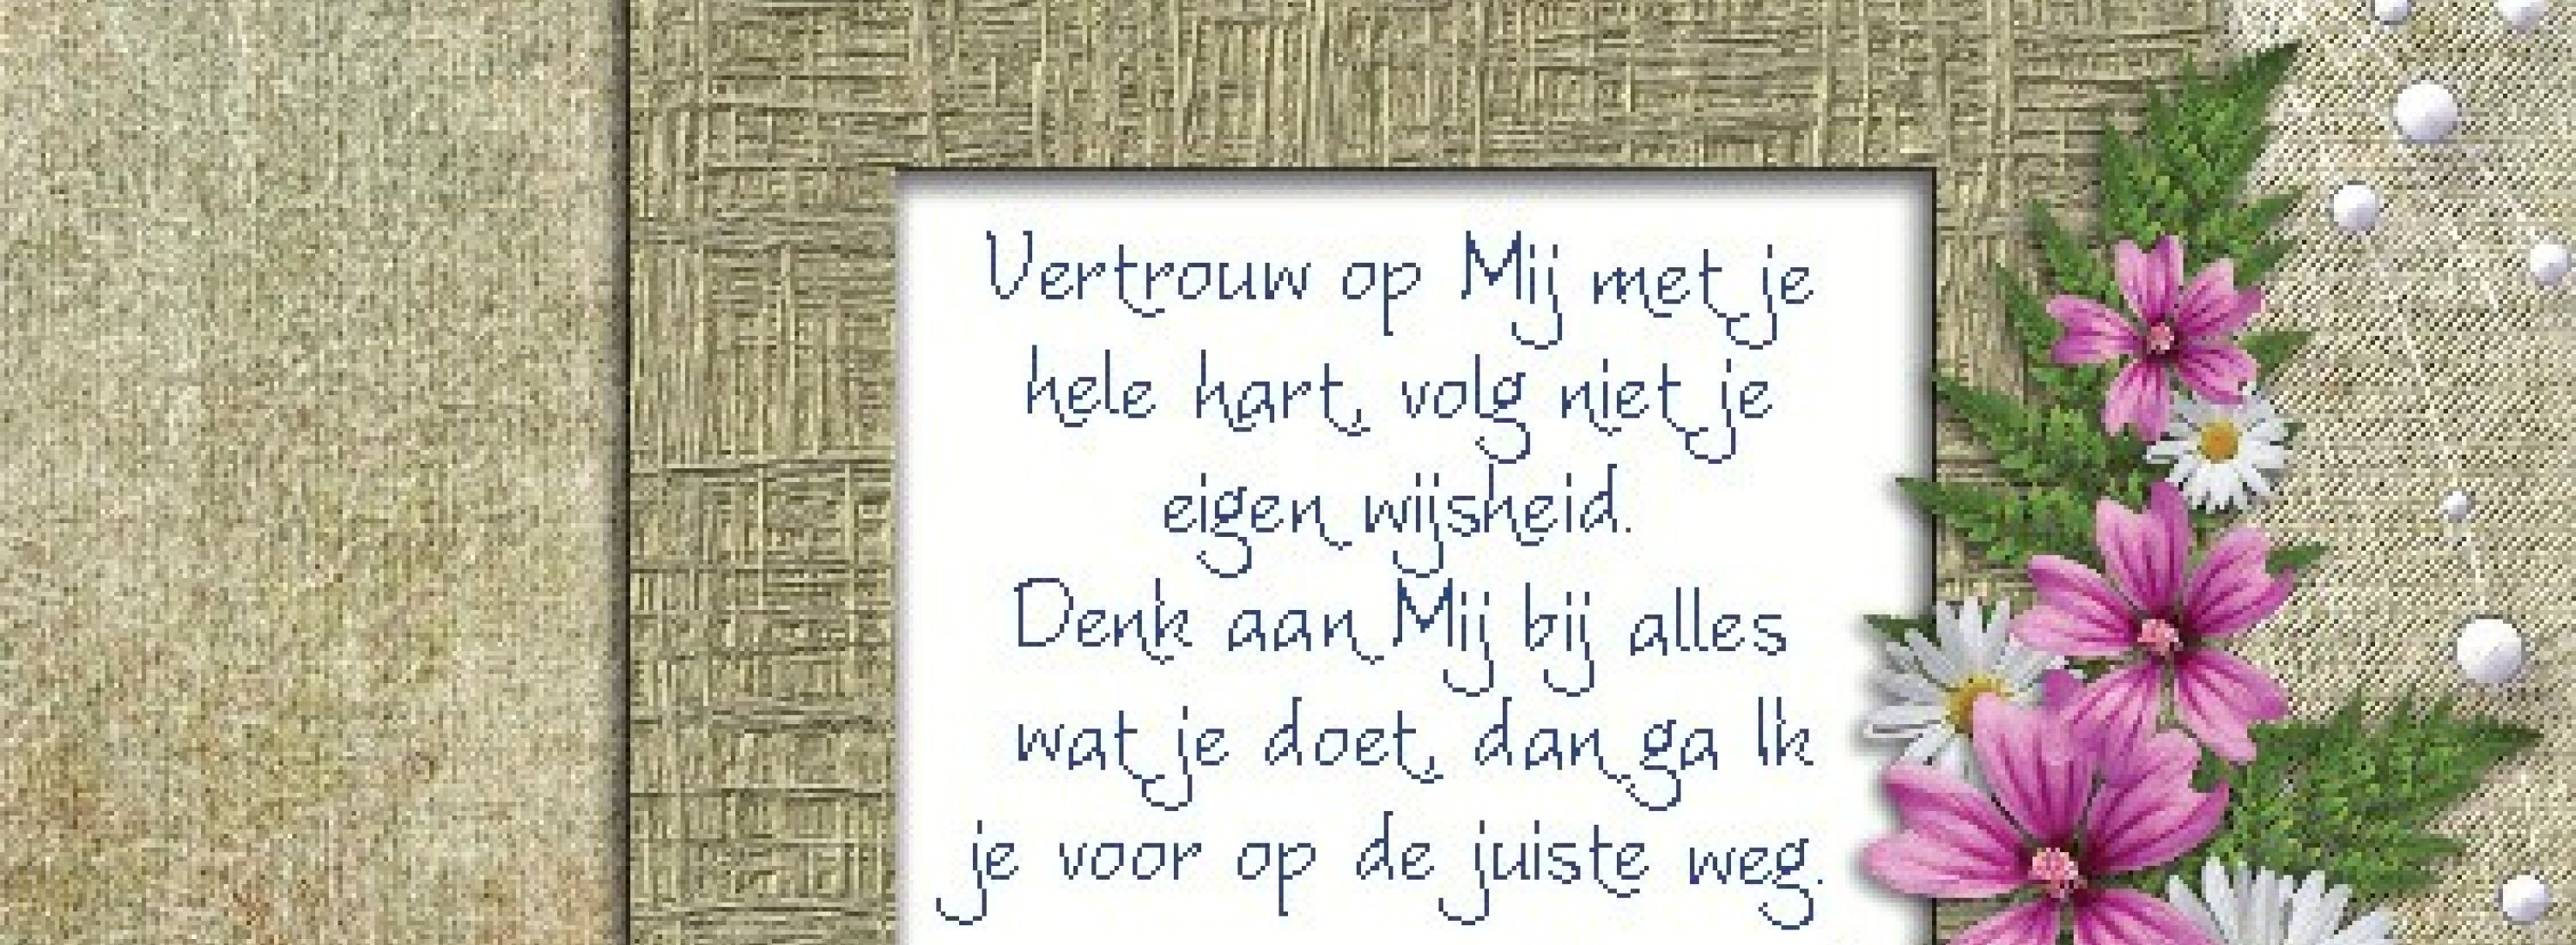 Vertrouw op Mij met je
hele hart, volg niet je
eigen wijsheid.
Denk aan Mij bij alles
wat je doet, dan ga Ik
je voor op de juiste weg.